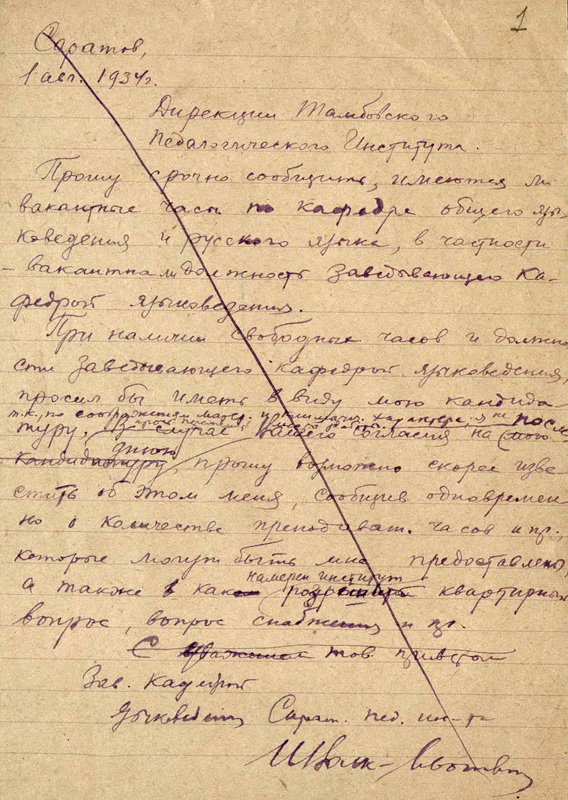 1
Саратов,
1 авг. 1934 г.
Дирекции Тамбовского
Педагогического Института.
Прошу срочно сообщить, имеются ли
вакантные часы по кафедре общего язы-
коведения и русского языка, в частности
- вакантна ли должность Заведывающего ка-
федрой языковедения.
При наличии свободных часов и должно
сти Заведывающего кафедрой языковедения,
просил бы иметь в виду мою кандида-
т.к. по соображениям характера, я не
туру. В случае Вашего согласия на мою
кандидатуру прошу возможно скорее изве
стить об этом меня, сообщив одновремен
но о количестве преподават. часов и пр.,
которые могут быть мне предоставлены,
намерен институт
а также как квартирный
вопрос, вопрос снабжения и пр.
С уважением тов. приветом
Зав. Кафедрой
Языковедения Сарат. пед. ин-та